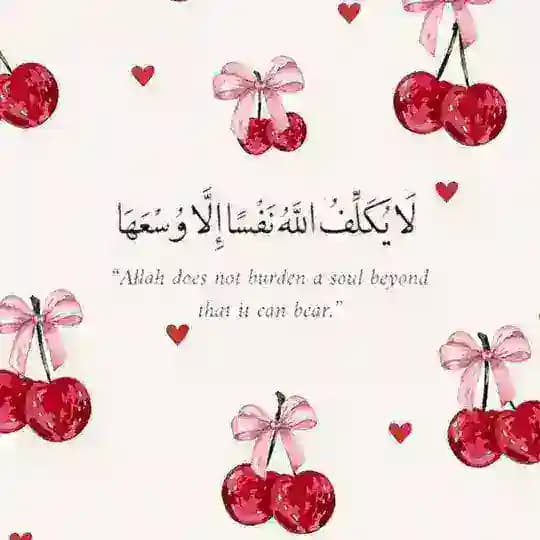 لَا يُكَلِّفُ اللَّهُ نَفْسًا إِلَّا وُسْعَهَا
“Allah does not burden a soul beyond
that it can bear.”